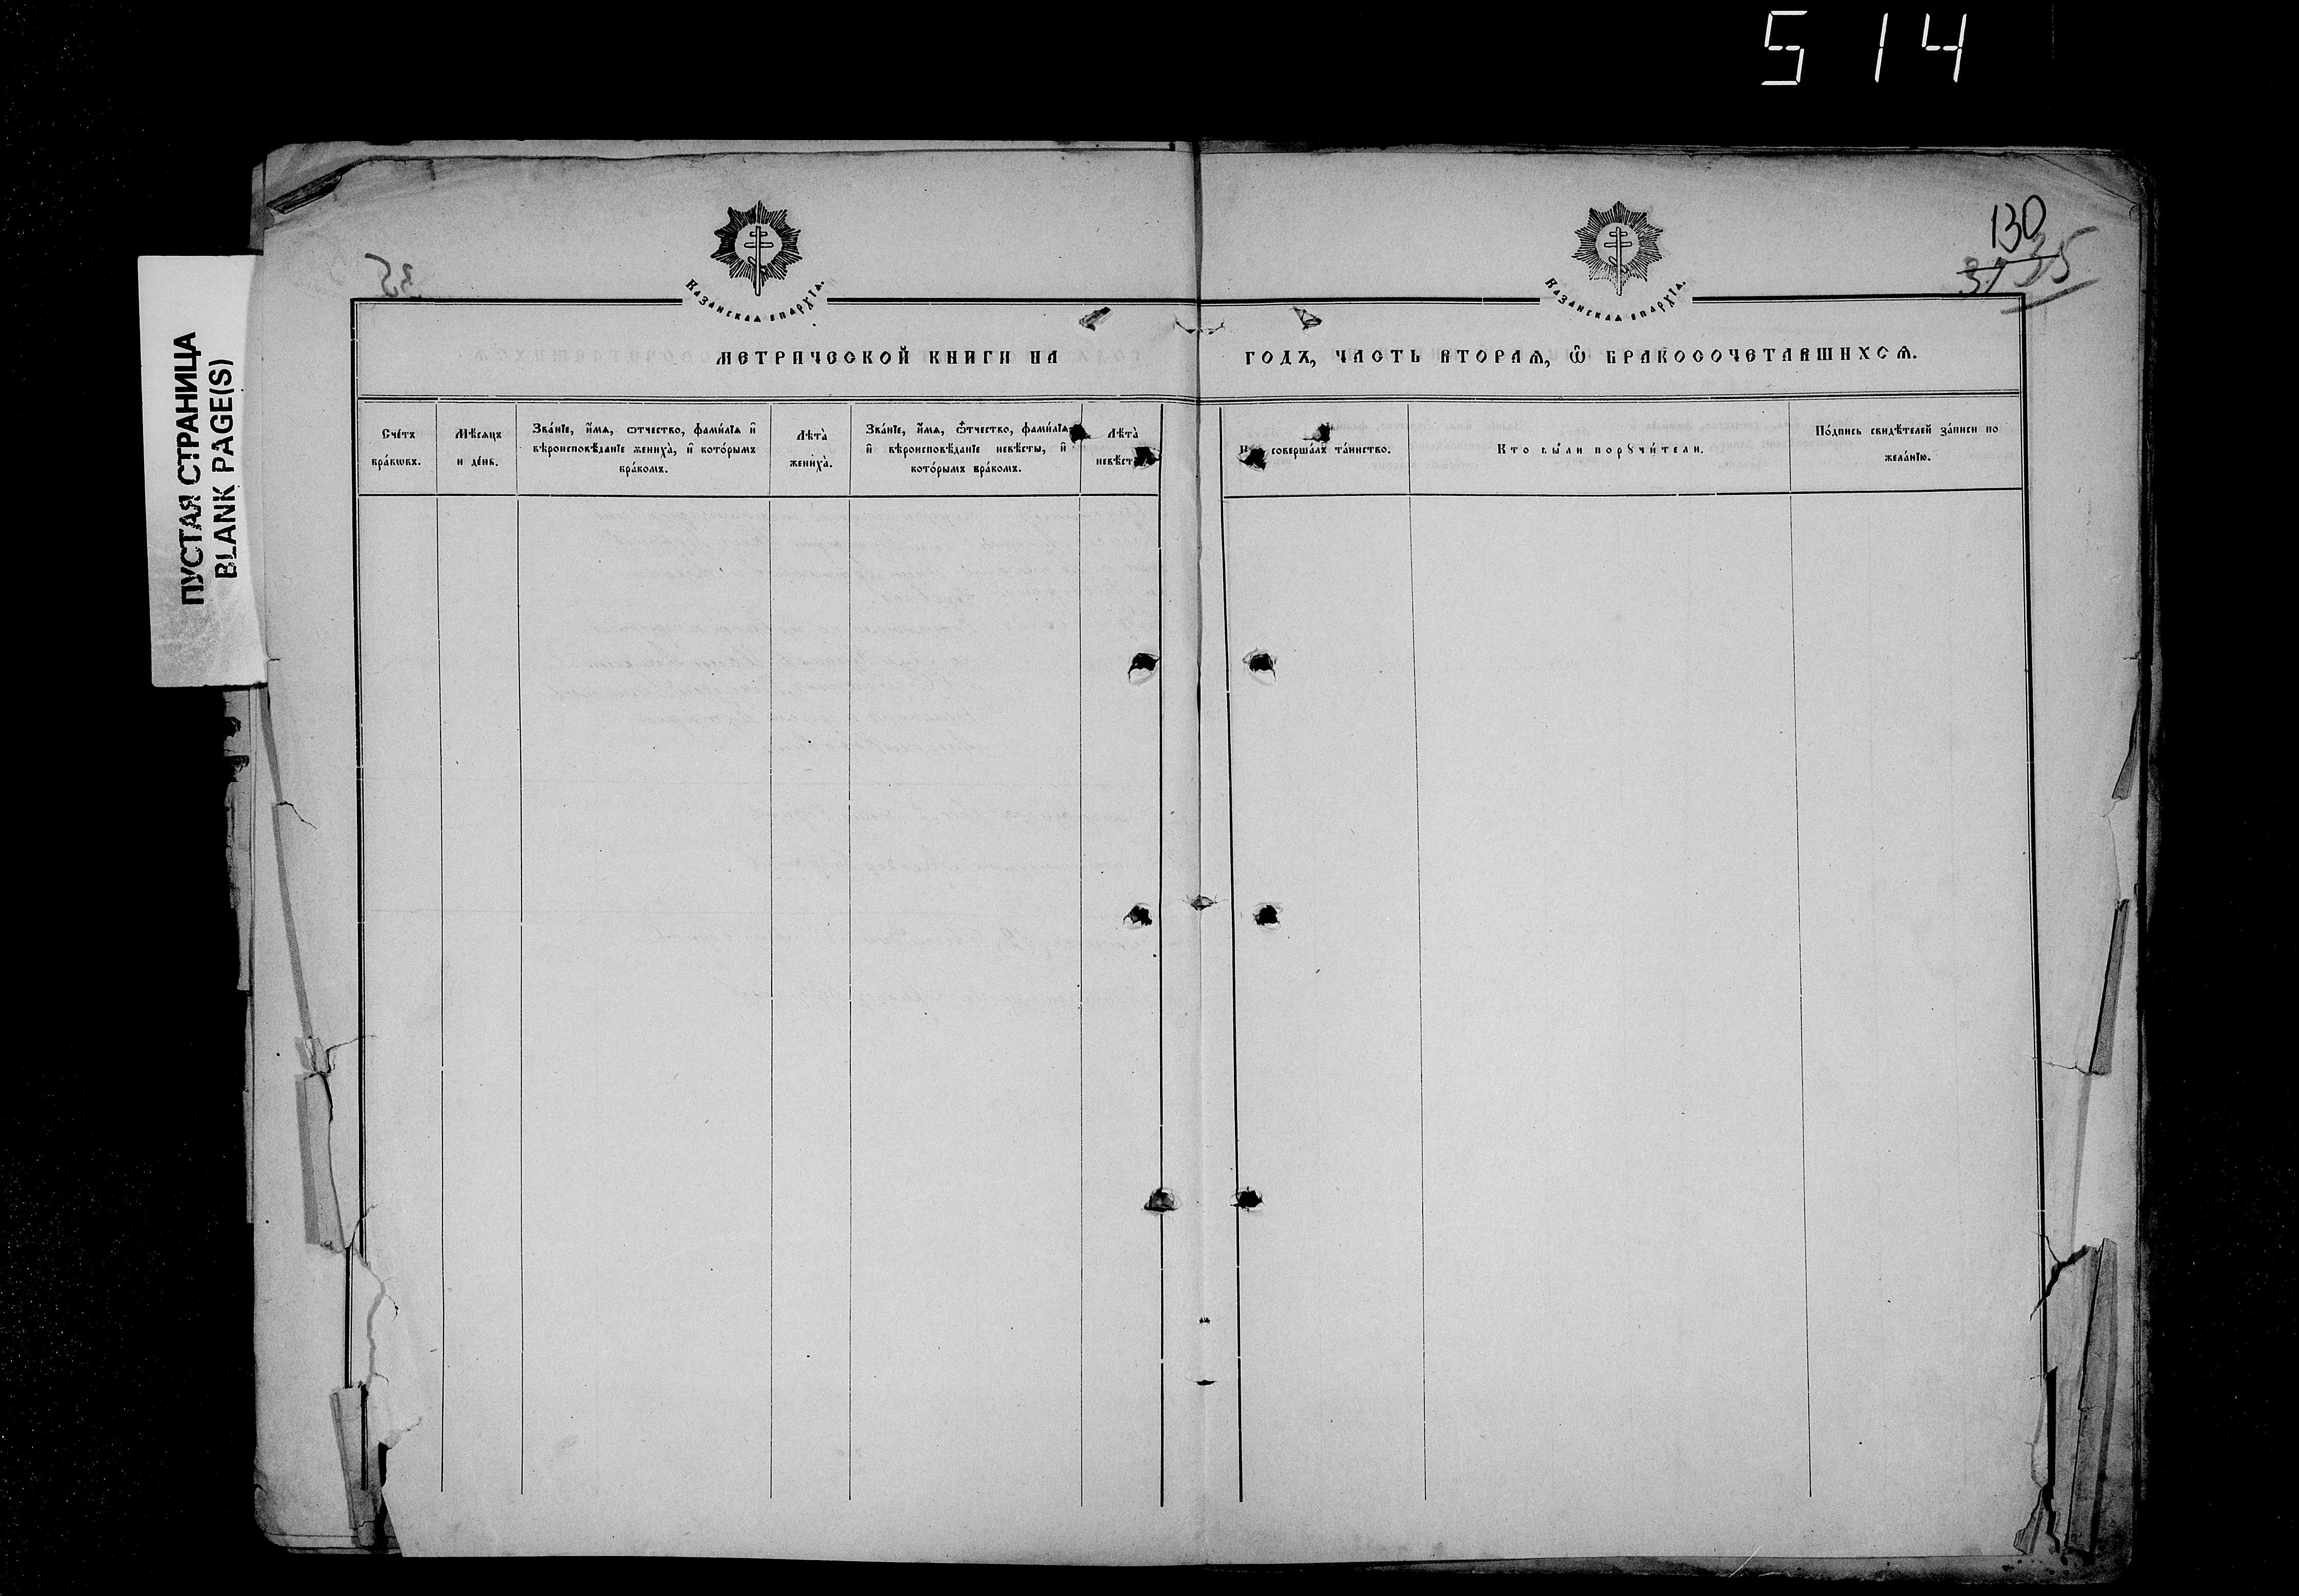 514
130
35
37
ПУСТАЯ СТРАНИЦА
BLANK PAGE(S)
Казанская епархїа.
Казанская епархїа.
МЕТРИЧЕСКОЙ КНИГИ НА
ГОДЪ, ЧАСТЬ ВТОРАѦ, Ѽ БРАКОСОЧЕТАВШИХСѦ.
Сче́тъ
бра́кѡвъ.
Мѣсяцъ
и де́нь.
Зва́нїе, и҆́мѧ, ѻтчество, фами́лїѧ и҆
вѣроисповѣ́данїе жениха̀, и҆ кото́рымъ
бра́комъ.
Лѣта̀
жениха̀.
Зва́нїе, и҆́мѧ, ѻ҆́тчество, фами́лїѧ
и҆ вѣроисповѣ́данїе невѣ́сты, и҆
кото́рымъ бра́комъ.
Лѣта̀
невѣ́ст
соверша́лъ та́инство.
Кто бы́ли порꙋчи́тели.
По́дпись свидѣ́телей за́писи по
жела́нїю.